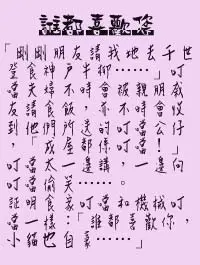 誰都喜歡您
「剛剛朋友請我地去千世
登食神戶牛柳……」叮
噹夫婦不時會被親朋戚
友請食飯，亦不時會收
到他們所送的叮噹公仔
叮噹「成屋都係叮噹！」
叮噹太太一邊講，一邊向
叮噹偷笑……。
証明食家叮噹和機械叮
噹一樣：「誰都喜歡你，
小貓也自豪……」